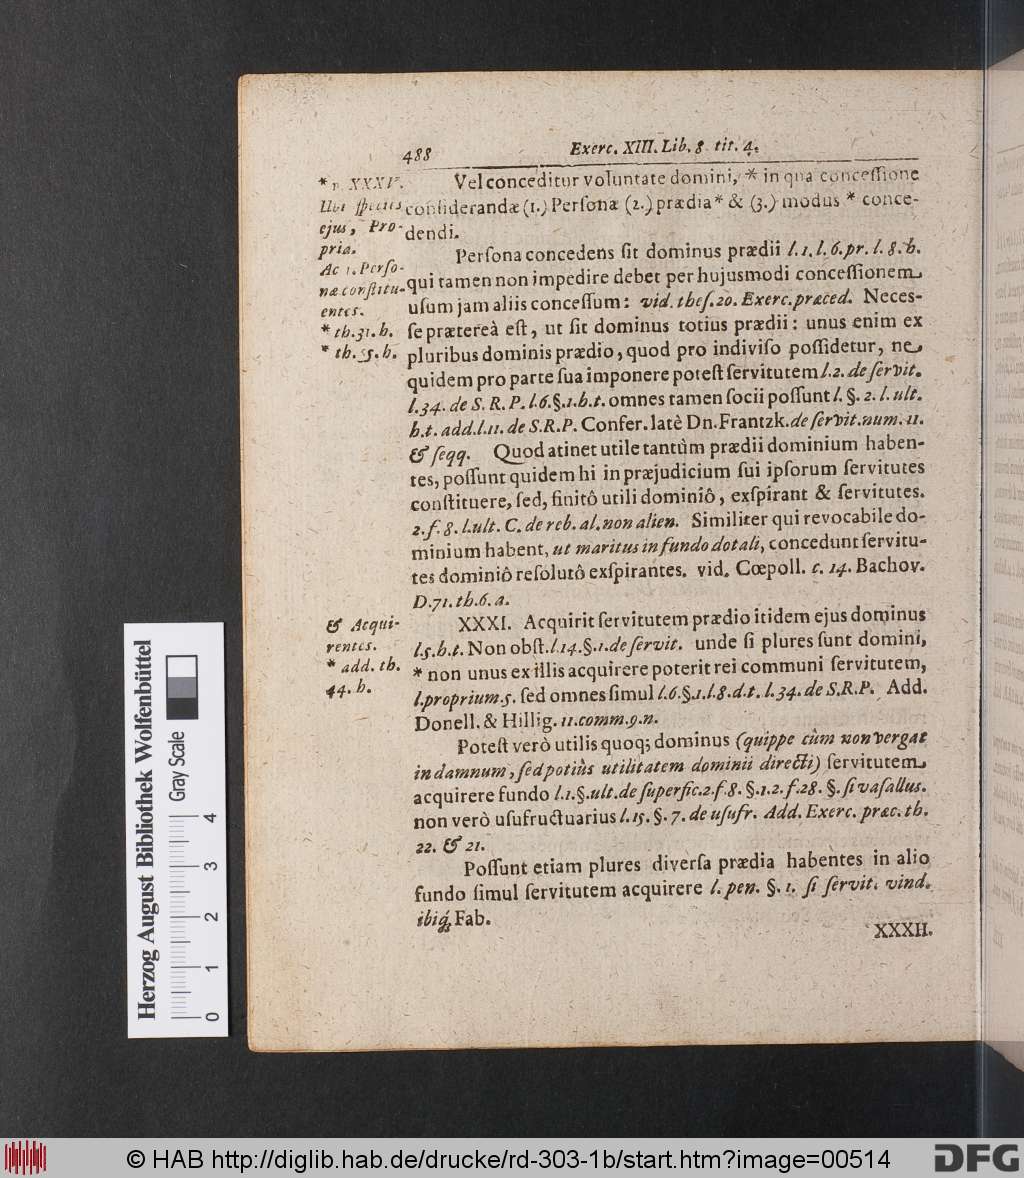 488
Exerc. XIII. Lib. 8 tit. 4.
* n. XXXIV.
Ubi species
ejus, Pro-
pria.
Ac 1. Perso-
næ constitu-
entes.
* th. 31. h.
* th. 35. h.
Vel conceditur voluntate domini, * in qua concessione
considerandæ (1.) Personæ (2.) prædia * & (3.) modus * conce-
dendi.
Persona concedens sit dominus prædii l. 1. l. 6. pr. l. 8. h.
qui tamen non impedire debet per hujusmodi concessionem
usum jam aliis concessum: vid. thes. 20. Exerc. præced. Neces-
se prætereà est, ut sit dominus totius prædii: unus enim ex
pluribus dominis prædio, quod pro indiviso possidetur, ne
quidem pro parte sua imponere potest servitutem l. 2. de servit.
l. 34. de S. R. P. l. 6. §. 1. h. t. omnes tamen socii possunt l. §. 2. l. ult.
h. t. add. l. 11. de S. R. P. Confer. latè Dn. Frantzk. de servit. num. 11.
& seqq. Quod atinet utile tantùm prædii dominium haben-
tes, possunt quidem hi in præjudicium sui ipsorum servitutes
constituere, sed, finitô utili dominiô, exspirant & servitutes.
2. f. 8. l. ult. C. de reb. al. non alien. Similiter qui revocabile do-
minium habent, ut maritus in fundo dotali, concedunt servitu-
tes dominiô resolutô exspirantes. vid. Cœpoll. c. 14. Bachov.
D. 71. th. 6. a.
& Acqui-
rentes.
* add. th.
44. h.
XXXI. Acquirit servitutem prædio itidem ejus dominus
l. 5. h. t. Non obst. l. 14. §. 1. de servit. unde si plures sunt domini,
* non unus ex illis acquirere poterit rei communi servitutem,
l. proprium. 5. sed omnes simul l. 6. §. 1. l. 8. d. t. l. 34. de S. R. P. Add.
Donell. & Hillig. 11. comm. 9. n.
Potest verò utilis quoq; dominus (quippe cùm non vergat
in damnum, sed potiùs utilitatem dominii directi) servitutem
acquirere fundo l. 1. §. ult. de superfic. 2. f. 8. §. 1. 2. f. 28. §. si vasallus.
non verò usufructuarius l. 15. §. 7. de usufr. Add. Exerc. præc. th.
22. & 21.
Possunt etiam plures diversa prædia habentes in alio
fundo simul servitutem acquirere l. pen. §. 1. si servit. vind.
ibiq; Fab.
XXXII.
Herzog August Bibliothek Wolfenbüttel
Gray Scale
0 1 2 3 4
© HAB http://diglib.hab.de/drucke/rd-303-1b/start.htm?image=00514
DFG